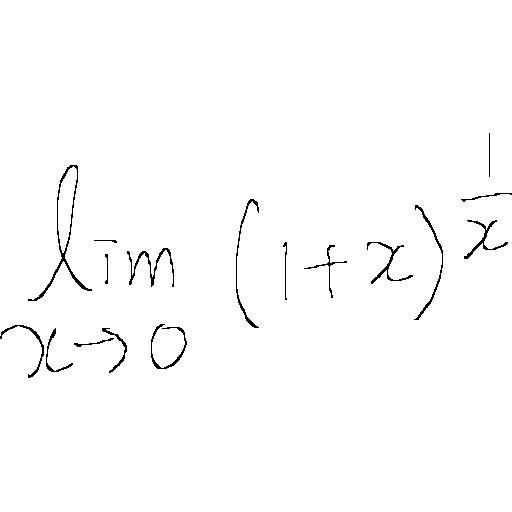 lim_{x→0} (1+x)^{\frac{1}{x}}